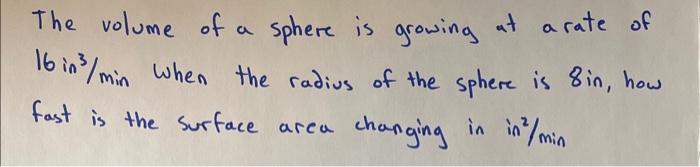 The volume of a sphere is growing at a rate of
16 in³/min when the radius of the sphere is 8in, how
fast is the surface area changing in in²/min